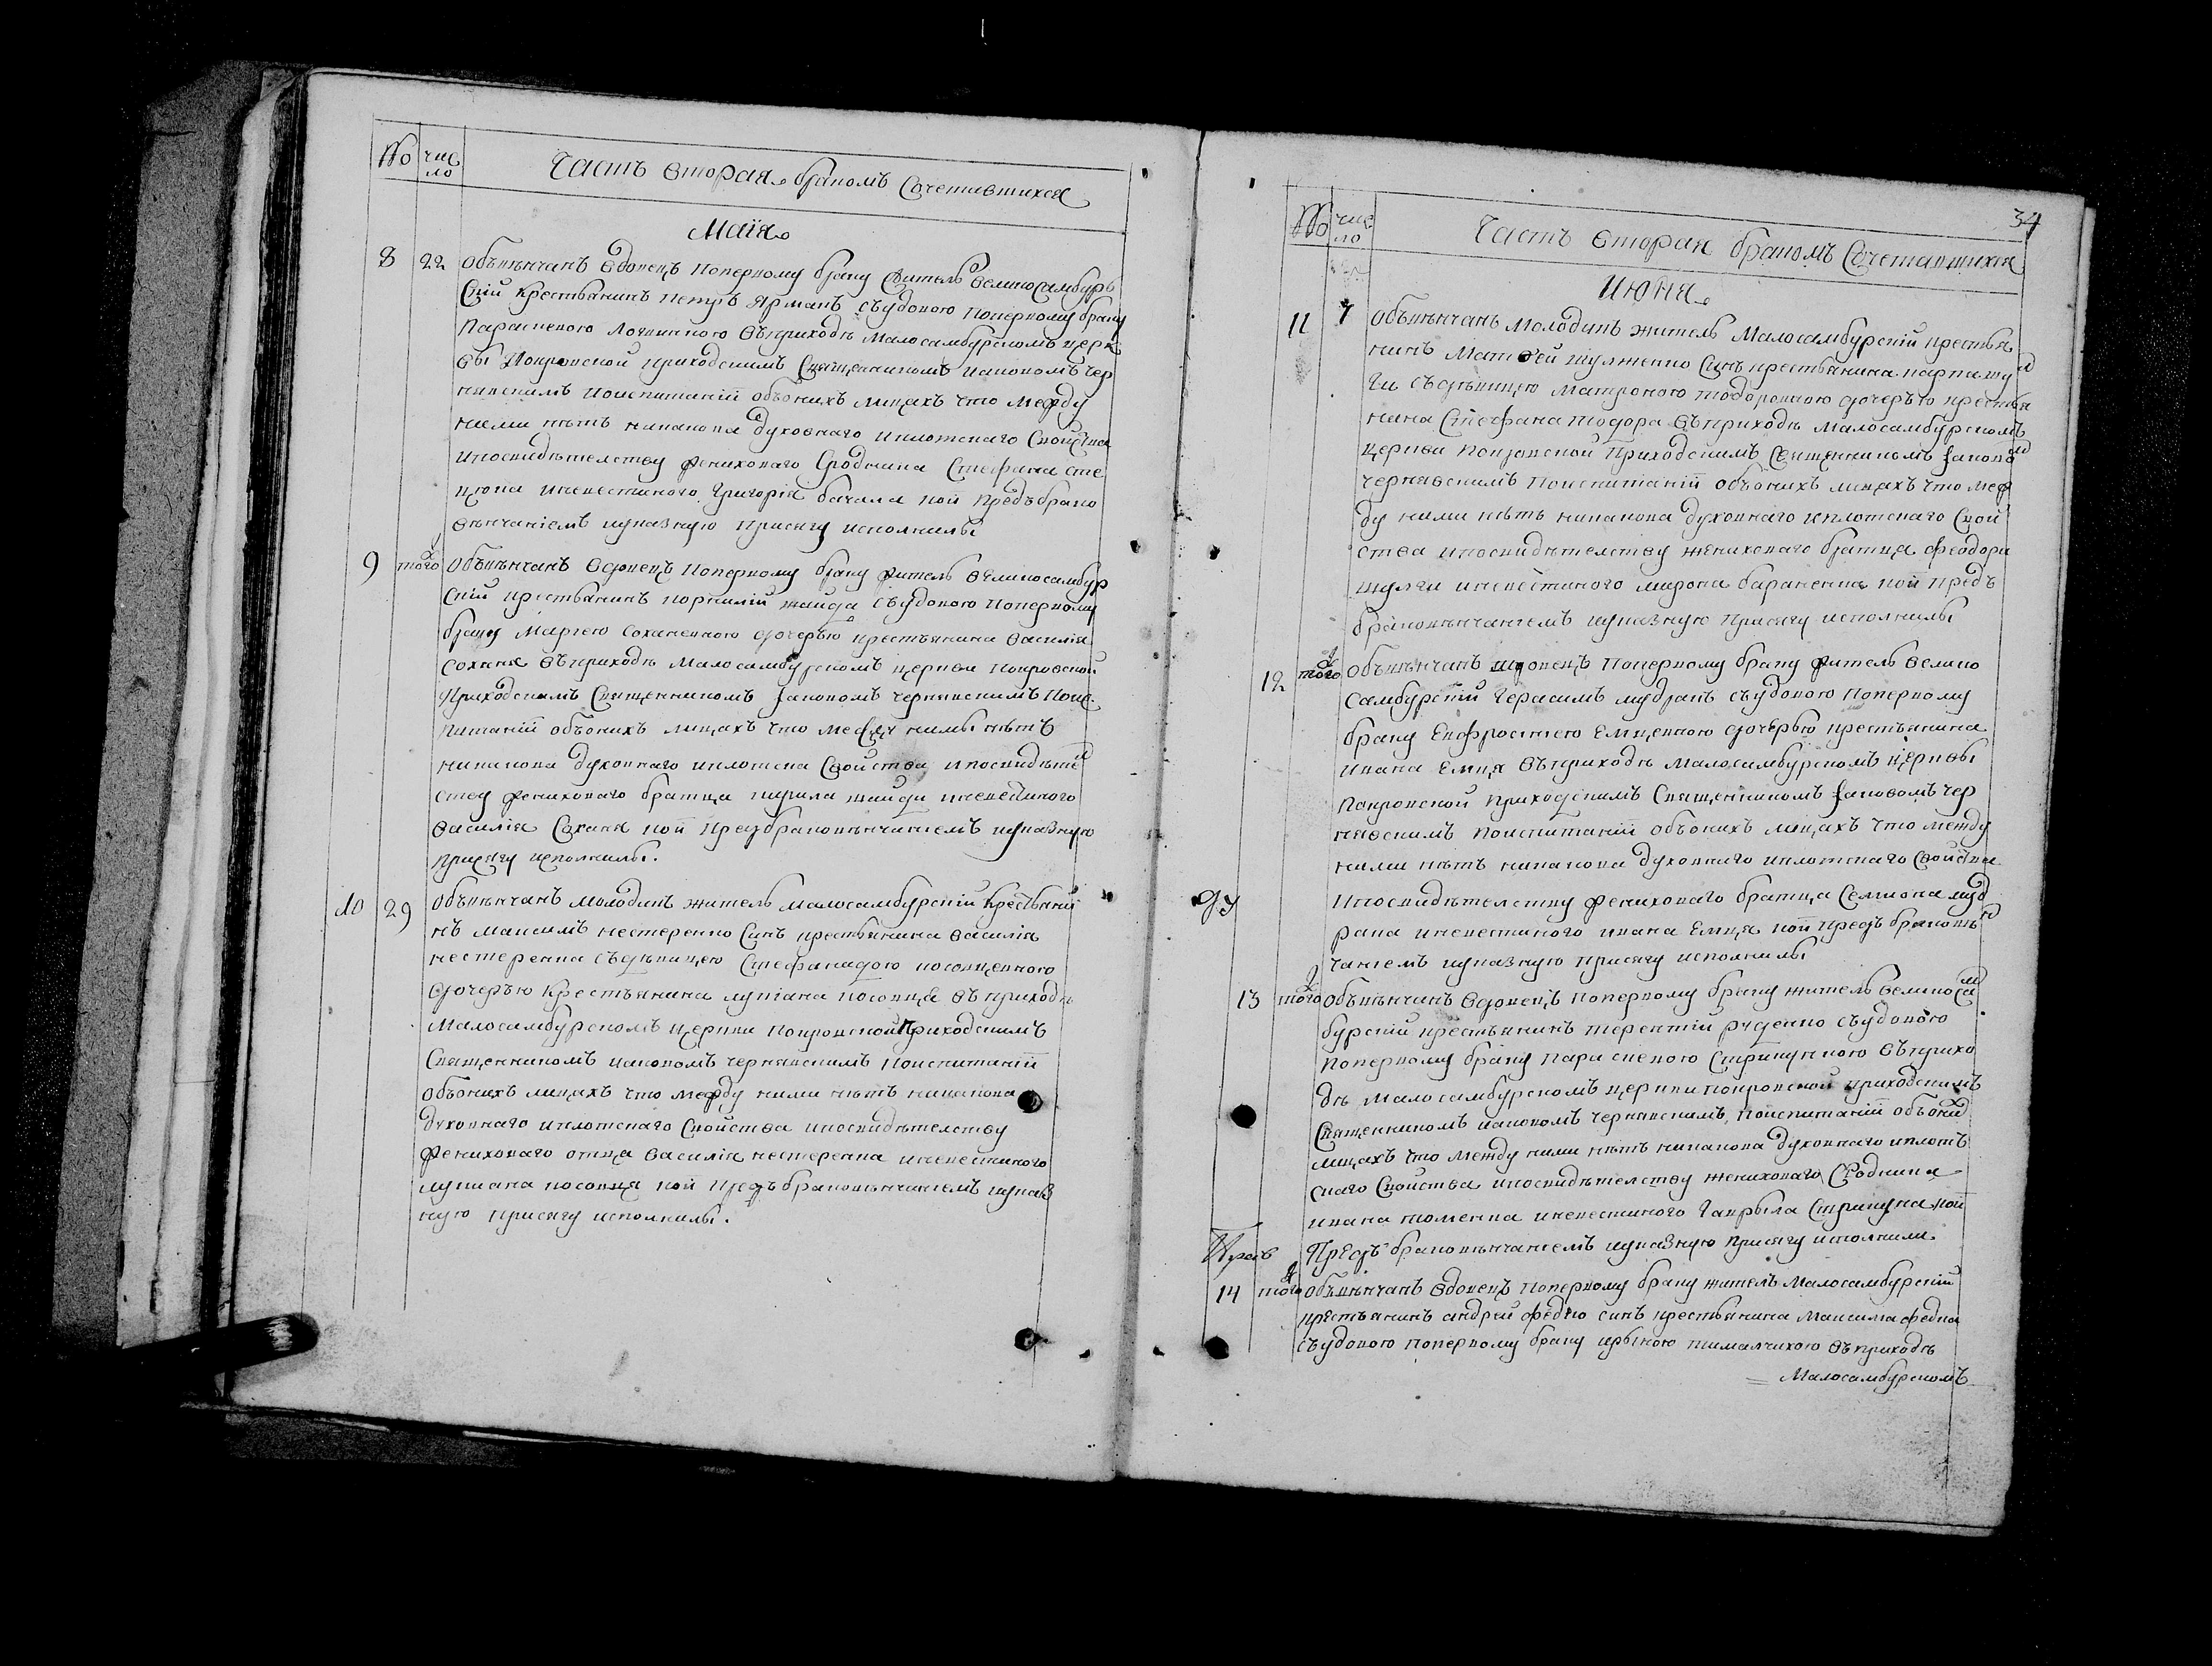 № чис
ло
Часть вторая бракомъ Сочетавшихся
Маія
8 22 Объвѣнчанъ вдовецъ поперному браку житель великосамбурь
скій крестьянинъ петръ Ярманъ съудовою поперному браку
Параскевою Логвинского въприходѣ Малосамбурскомъ церк
вы Покровской приходскимъ Священникомъ иаковомъ чер
нявскимъ поиспитаніи объоныхъ лицахъ что между
ними нѣтъ никакова духовнаго иплотскаго свойства
ипосвидѣтелству жениховаго сродника Стефана сте
цюка иневестиного Григорія бачала кои предъбрако
вѣнчаніемъ иуказную присягу исполнилы
9 того Объвѣнчанъ вдовецъ поперному браку житель великосамбур
скій крестьянинъ корнилій жайда съудовою поперному
браку Марфею Соханевною дочерью крестьянина василія
сохана въприходѣ Малосамбурскомъ церкви покровской
приходскимъ Священникомъ Iаковомъ чернявскимъ поис
питаніи объоныхъ лицахъ что между нимы нѣтъ
никакова духовнаго иплотска свойства ипосвидѣтел
ству жениховаго братца кирила жайди иневестиного
василія Сохана кои предбраковѣнчаніемъ иуказную
присягу исполнилы.
10 29 Объвѣнчанъ молодикъ житель Малосамбурскій крестьяни
нъ максимъ нестеренко Синъ крестьянина василія
нестеренка съдѣвицею Стефанидою косовцевною
дочерью крестьянина лукіана косовця въприходѣ
Малосамбурскомъ церкви покровской приходскимъ
Священникомъ иаковомъ чернявскимъ поиспитаніи
объоныхъ лицахъ что между ними нѣтъ никакова
духовнаго иплотскаго свойства ипосвидѣтелству
жениховаго отца василія нестеренка иневестиного
лукиана косовця кои предъбраковѣнчаніемъ иуказ
ную присягу исполнилы.
34
№ чис
ло
Часть вторая бракомъ Сочетавшихся
Июня
11 7 Объвѣнчанъ молодикъ житель Малосамбурскій крестья
нинъ Матвей шулженко Синъ крестьянина карпа шул
ги съдѣвицею Матроною тодоровною дочерью крестья
нина Стефана тодора въприходѣ малосамбурскомъ
церкви покровской приходскимъ Священникомъ Iаковом
чернявскимъ поиспитаніи объоныхъ лицахъ что меж
ду ними нѣтъ никакова духовнаго иплотскаго свой
ства ипосвидѣтелству жениховаго братца феодора
шулги иневестиного мирона бараненка кои предъ
браковѣнчаніемъ иуказную присягу исполнилы
12 того Объвѣнчанъ вдовецъ поперному браку житель велико
самбурскій Герасимъ мудракъ съудовою поперному
браку Ефросиніею Емцевною дочерью крестьянина
ивана Емця въприходѣ малосамбурскомъ церквы
покровской приходскимъ Священникомъ Iаковомъ чер
нявскимъ поиспитаніи объоныхъ лицахъ что между
ними нѣтъ никакова духовнаго иплотскаго свойства
ипосвидѣтелству жениховаго братца Семиона муд
рака иневестиного ивана Емця кои предъ браковѣн
чаніемъ иуказную присягу исполнилы
13 того Объвѣнчанъ вдовецъ поперному браку житель великосам
бурскій крестьянинъ терентій руденко съудовою
поперному браку параскевою Стрикункою въприхо
дѣ малосамбурскомъ церкви покровской приходскимъ
Священникомъ иаковомъ чернявскимъ, поиспитаніи объоных
лицахъ что между ними нѣтъ никакова духовнаго иплот
скаго свойства ипосвидѣтелству жениховаго Сродника
ивана томенка иневестиного Гаврыла Стрикуна кои
предъ браковѣнчаніемъ иуказную присягу исполнили
14 того Объвѣнчанъ вдовецъ поперному браку житель Малосамбурскій
крестьянинъ андрей федко синъ крестьянина Максима федка
съудовою поперному браку ирыною въприходѣ
Малосамбурскомъ